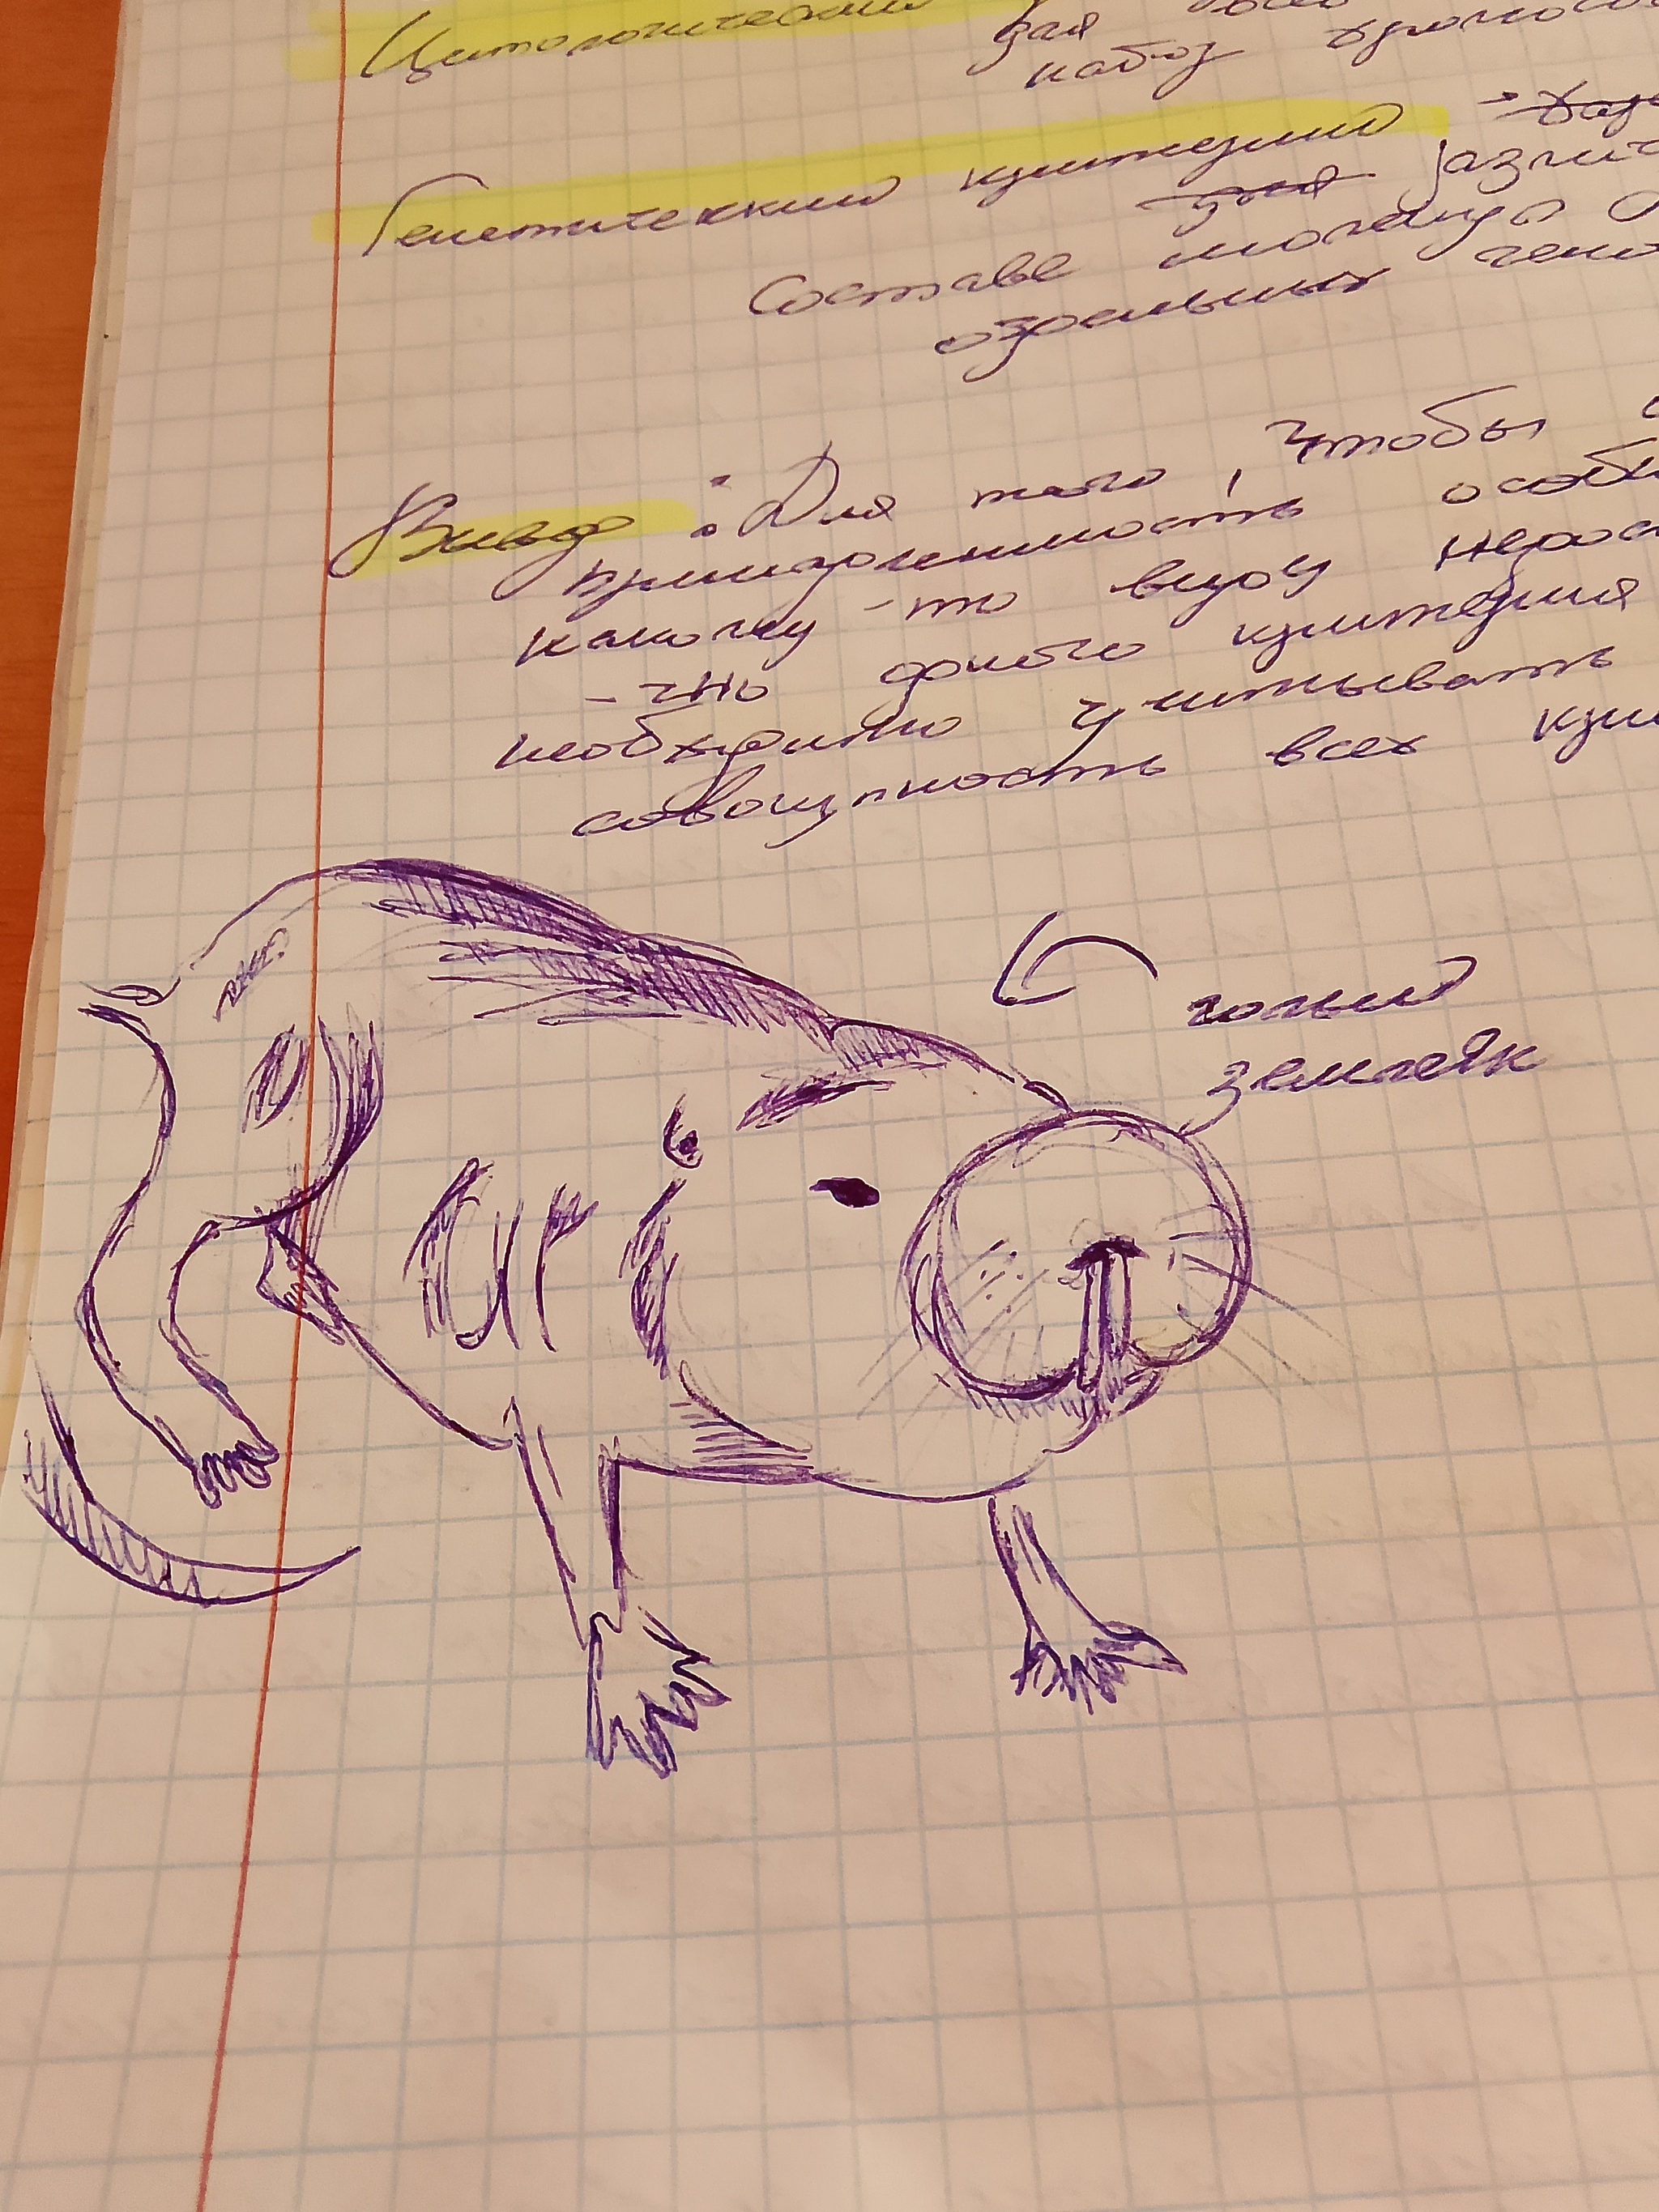 Цитологический для всего
набор хромосо
Генетический критерий →
различ
составе молекул
отдельных гено
Вывод: Для того, чтобы
принадлежность особи
какому-то виду недоста
-чно одного критерия
необходимо учитывать
совокупность всех кри
голый
землекоп